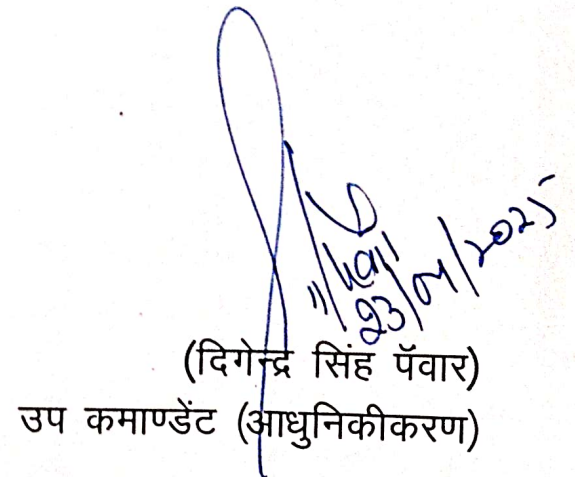 23/04/2025
(दिगेन्द्र सिंह पॅवार)
उप कमाण्डेंट (आधुनिकीकरण)